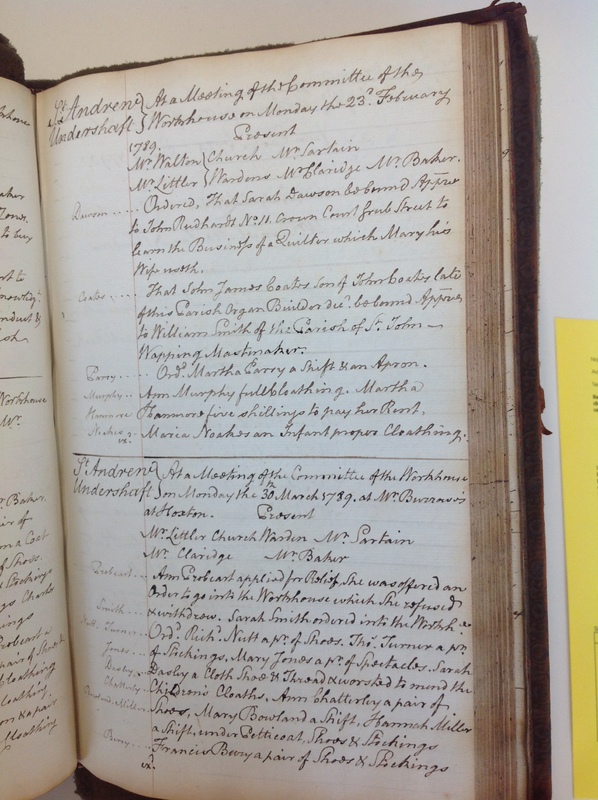 St. Andrew At a Meeting of the Committee of the
Undershaft Workhouse on Monday the 23d. February
1789. Present
Mr. Walton Church Mr. Sartain
Mr. Littler Wardens Mr. Claridge Mr. Baker.
Dawson ..... Ordered, That Sarah Dawson be bound Appre
to John Rudhardt No. 11. Crown Court Grub Street to
learn the Business of a Quilter which Mary his
Wife useth.
Coates ..... That John James Coates Son of John Coates late
of this Parish Organ Builder dec'd. be bound Appre
to William Smith of the Parish of St. John
Wapping Mastmaker.
Parry ..... Ord. Martha Parry a Shift & an Apron.
Murphy .. Ann Murphy full Cloathing. Martha
Hanmore Hanmore five shillings to pay her Rent.
Noakes Maria Noakes an Infant proper Cloathing.
exd.
St. Andrew At a Meeting of the Committee of the Workhouse
Undershaft on Monday the 30th March 1789. at Mr. Burrows's
at Hoxton. Present
Mr. Littler Church Warden Mr. Sartain
Mr. Claridge Mr. Baker
Probeart ... Ann Probeart applied for Relief, She was offered an
Order to go into the Workhouse which She refused
Smith .... & withdrew. Sarah Smith ordered into the Workh.
Nutt Turner Ord. Richd. Nutt a pr. of Shoes. Thos. Turner a pr.
Jones ... of Stockings, Mary Jones a pr. of Spectacles. Sarah
Dasley Dasley a Cloth Shoe & Thread & worsted to mend the
Chatterley Children's Cloaths. Ann Chatterley a pair of
Bowland Miller Shoes, Mary Bowland a Shift, Hannah Miller
a Shift, under Petticoat, Shoes & Stockings
Bury .... Francis Bury a pair of Shoes & Stockings
exd.